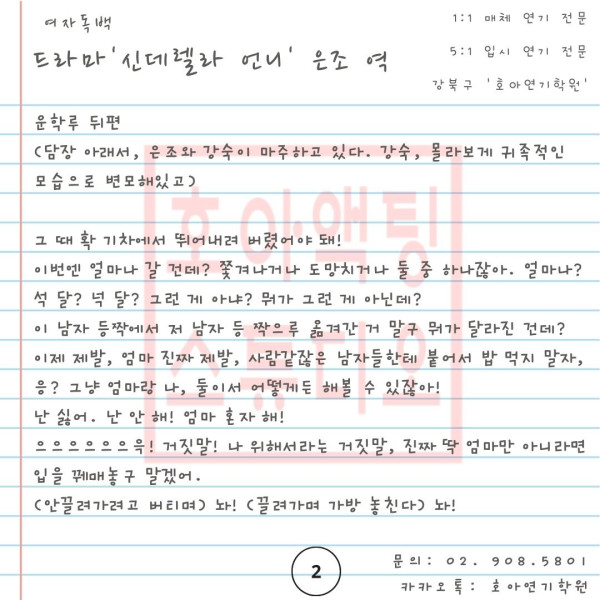 여자독백
드라마'신데렐라 언니' 은조 역
1:1 매체 연기 전문
5:1 입시 연기 전문
강북구 '호아연기학원'
운학루 뒤편
(담장 아래서, 은조와 강숙이 마주하고 있다. 강숙, 몰라보게 귀족적인
모습으로 변모해있고)
그 때 확 기차에서 뛰어내려 버렸어야 돼!
이번엔 얼마나 갈 건데? 쫓겨나거나 도망치거나 둘 중 하나잖아. 얼마나?
석 달? 넉 달? 그런 게 아냐? 뭐가 그런 게 아닌데?
이 남자 등짝에서 저 남자 등 짝으루 옮겨간 거 말구 뭐가 달라진 건데?
이제 제발, 엄마 진짜 제발, 사람같잖은 남자들한테 붙어서 밥 먹지 말자,
응? 그냥 엄마랑 나, 둘이서 어떻게든 해볼 수 있잖아!
난 싫어. 난 안 해! 엄마 혼자 해!
으으으으으으윽! 거짓말! 나 위해서라는 거짓말, 진짜 딱 엄마만 아니라면
입을 꿰매놓구 말겠어.
(안끌려가려고 버티며) 놔! (끌려가며 가방 놓친다) 놔!
호아액팅
스튜디오
2
문의: 02. 908.5801
카카오톡: 호아연기학원